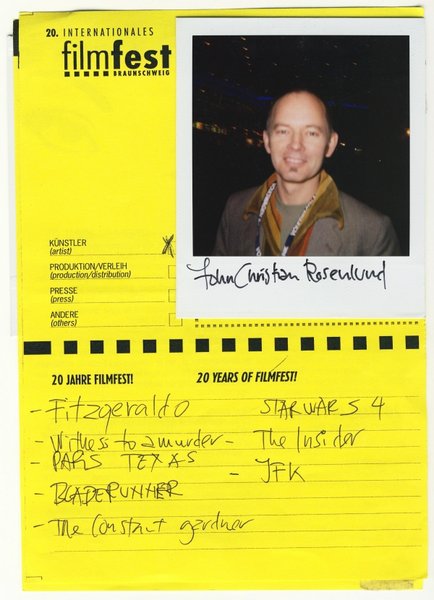 20. INTERNATIONALES
filmfest
BRAUNSCHWEIG
John Christian Rosenlund
KÜNSTLER
(artist)
PRODUKTION/VERLEIH
(production/distribution)
PRESSE
(press)
ANDERE
(others)
20 JAHRE FILMFEST! 20 YEARS OF FILMFEST!
- Fitzgeraldo
- Witness to a murder
- PARIS TEXAS
- BLADERUNNER
- The Constant gardner
STARWARS 4
- The Insider
- JFK